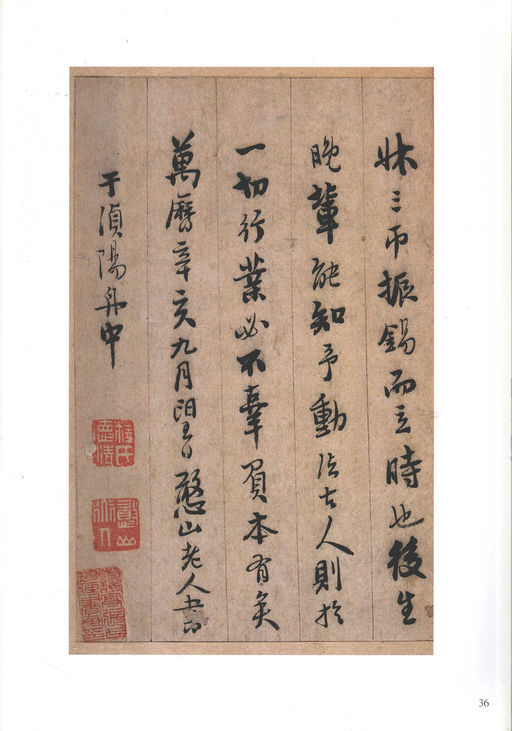 牀三帀振錫而立時也後生
晚輩能知予動法古人則於
一切行業必不辜負本有矣
萬曆辛亥九月望日憨山老人書
于湞陽舟中
釋氏德清
36